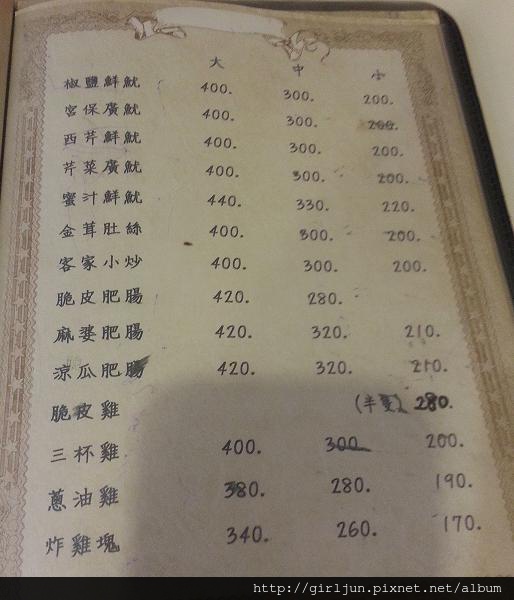 大 中 小
椒鹽鮮魷 400. 300. 200.
宮保廣魷 400. 300. 200.
西芹鮮魷 400. 300. 200.
芹菜廣魷 400. 300. 200.
蜜汁鮮魷 440. 330. 220.
金茸肚絲 400. 300. 200.
客家小炒 400. 300. 200.
脆皮肥腸 420. 280.
麻婆肥腸 420. 320. 210.
涼瓜肥腸 420. 320. 210.
脆皮雞 (半隻) 280.
三杯雞 400. 300. 200.
蔥油雞 380. 280. 190.
炸雞塊 340. 260. 170.
http://girljun.pixnet.net/album